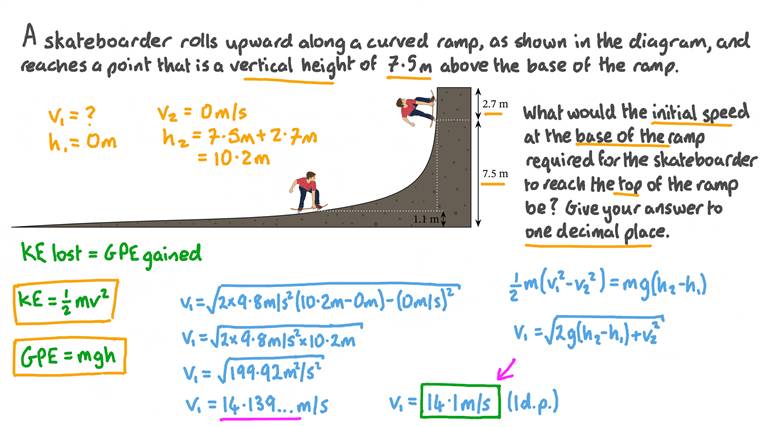 A skateboarder rolls upward along a curved ramp, as shown in the diagram, and
reaches a point that is a vertical height of 7.5m above the base of the ramp.
v₁ = ?
h₁ = 0m
v₂ = 0m/s
h₂ = 7.5m + 2.7m
= 10.2m
2.7 m
7.5 m
1.1 m
What would the initial speed
at the base of the ramp
required for the skateboarder
to reach the top of the ramp
be? Give your answer to
one decimal place.
KE lost = GPE gained
KE = ½mv²
GPE = mgh
v₁ = √(2×9.8m/s²(10.2m-0m)-(0m/s)²)
v₁ = √(2×9.8m/s²×10.2m)
v₁ = √(199.92m²/s²)
v₁ = 14.139... m/s
½m(v₁²-v₂²) = mg(h₂-h₁)
v₁ = √(2g(h₂-h₁)+v₂²)
v₁ = 14.1m/s (1d.p.)